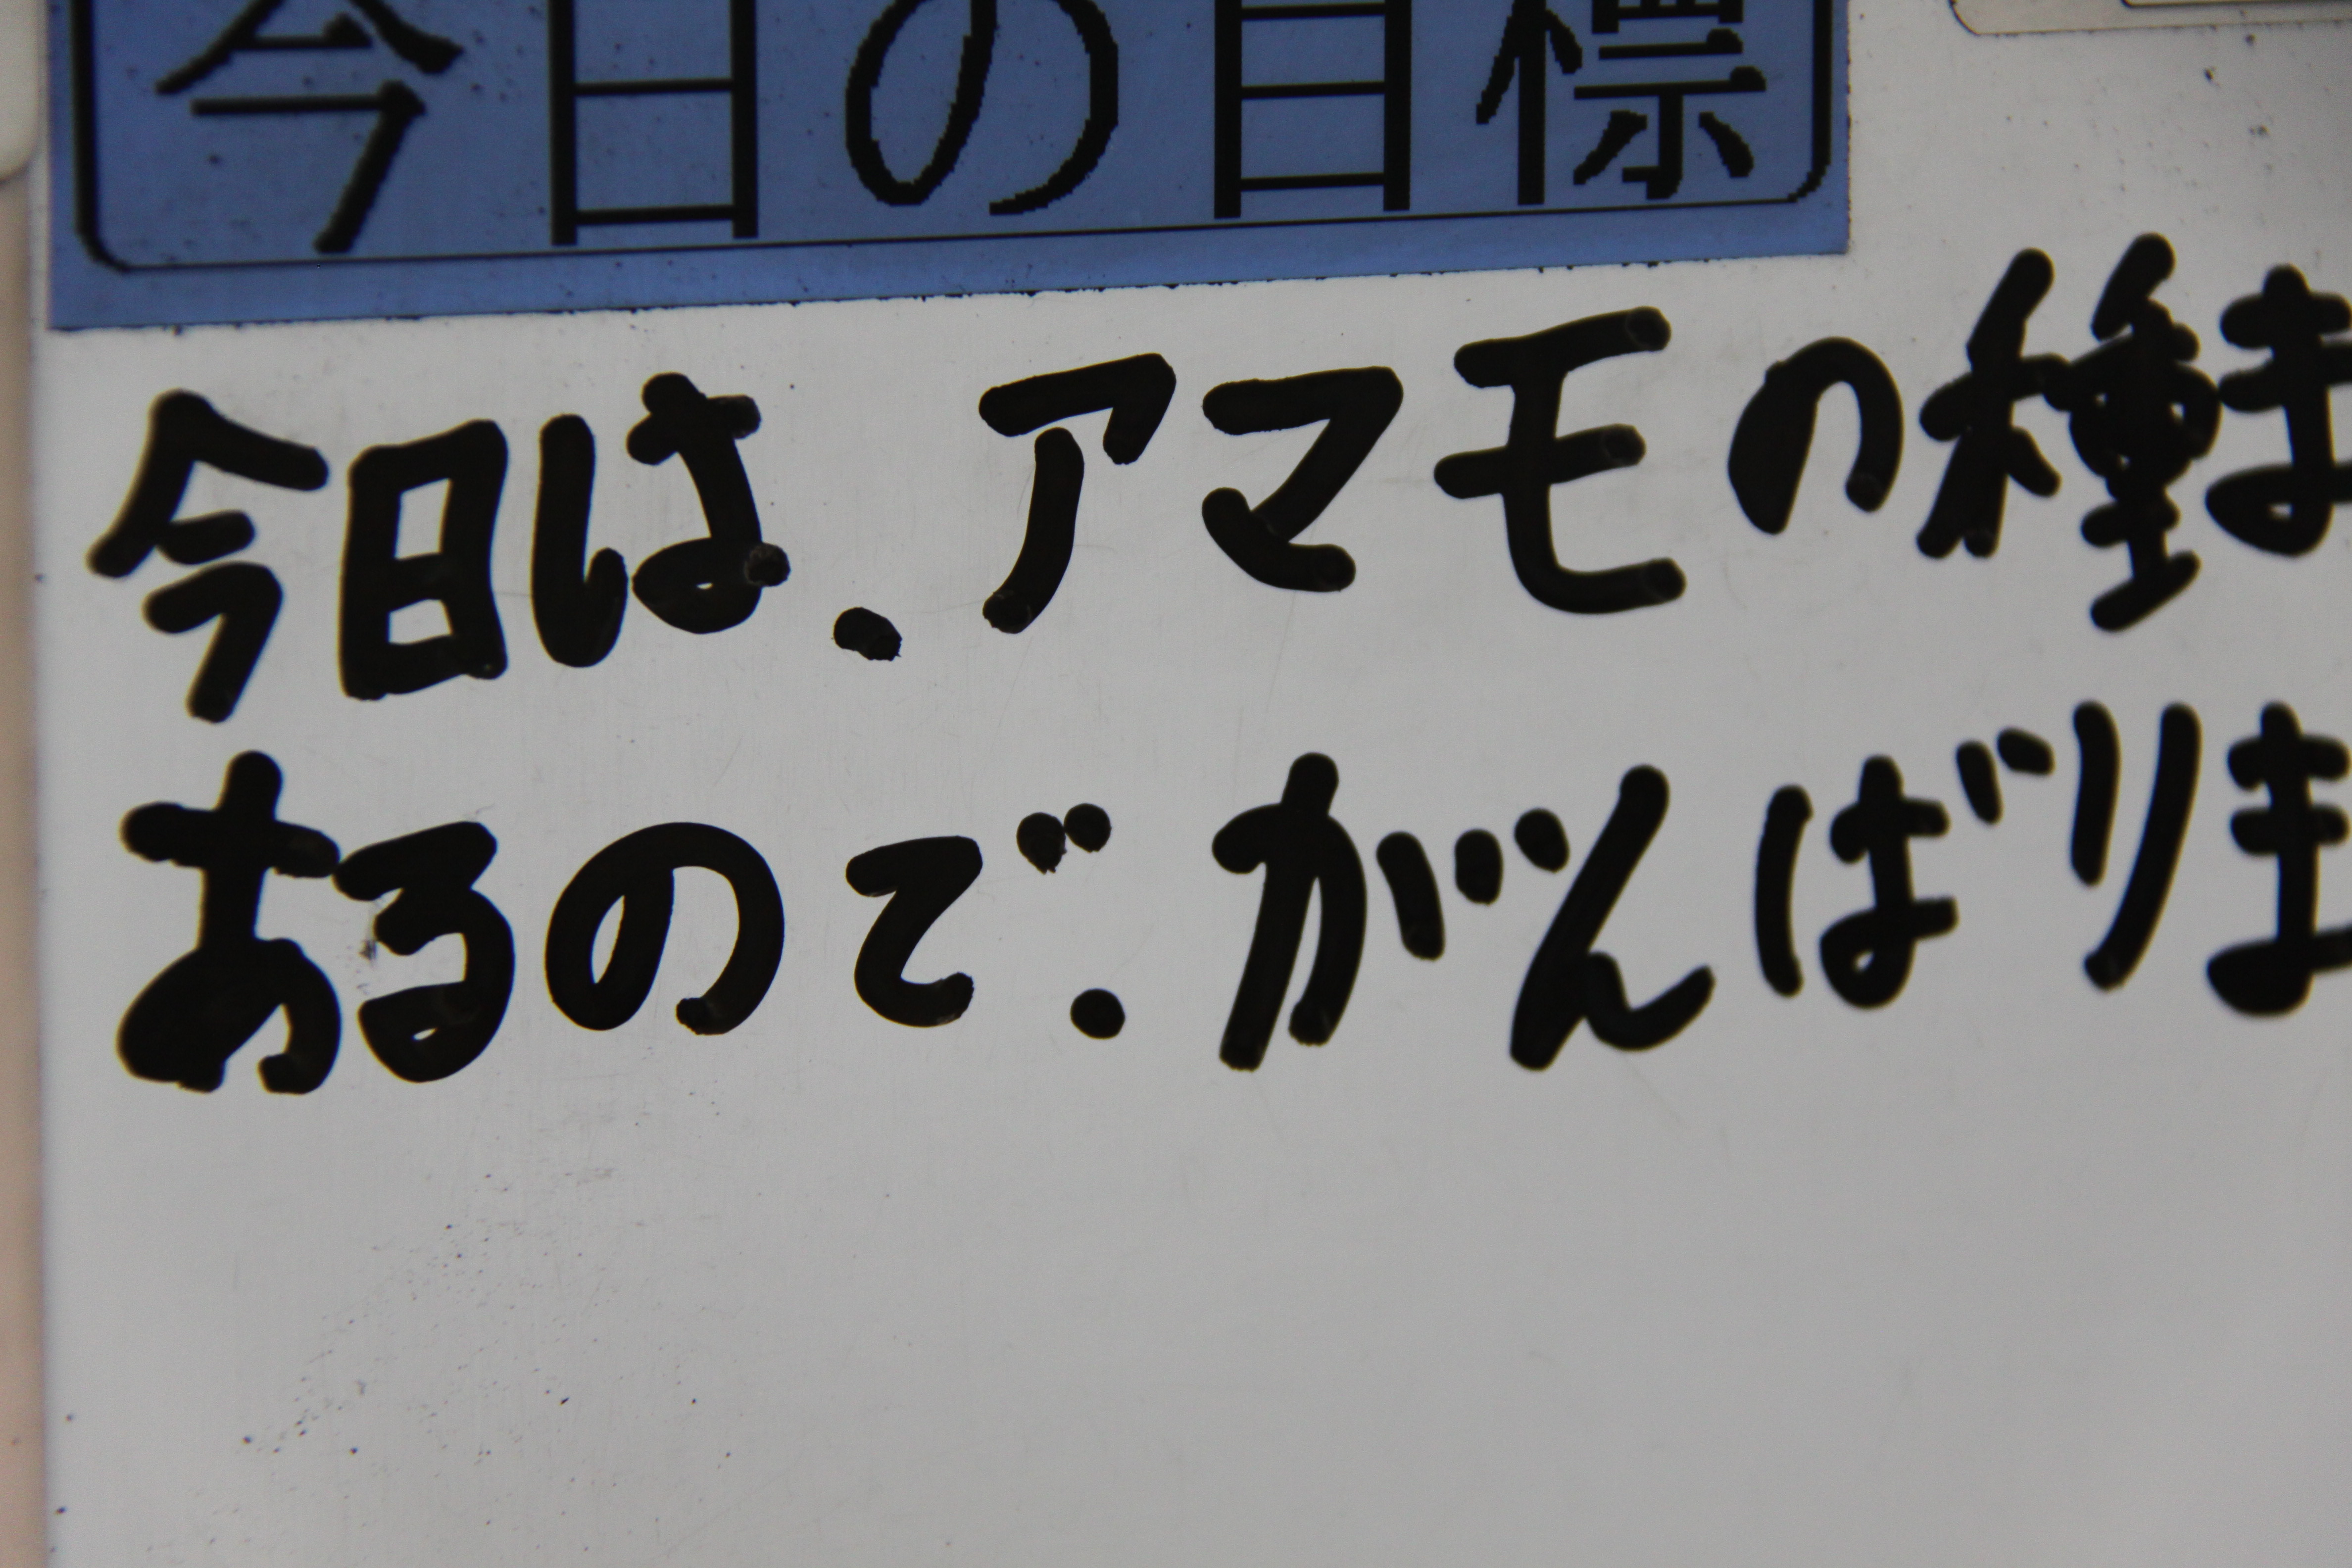 今日の目標
今日は、アマモの種ま
あるので、がんばりま